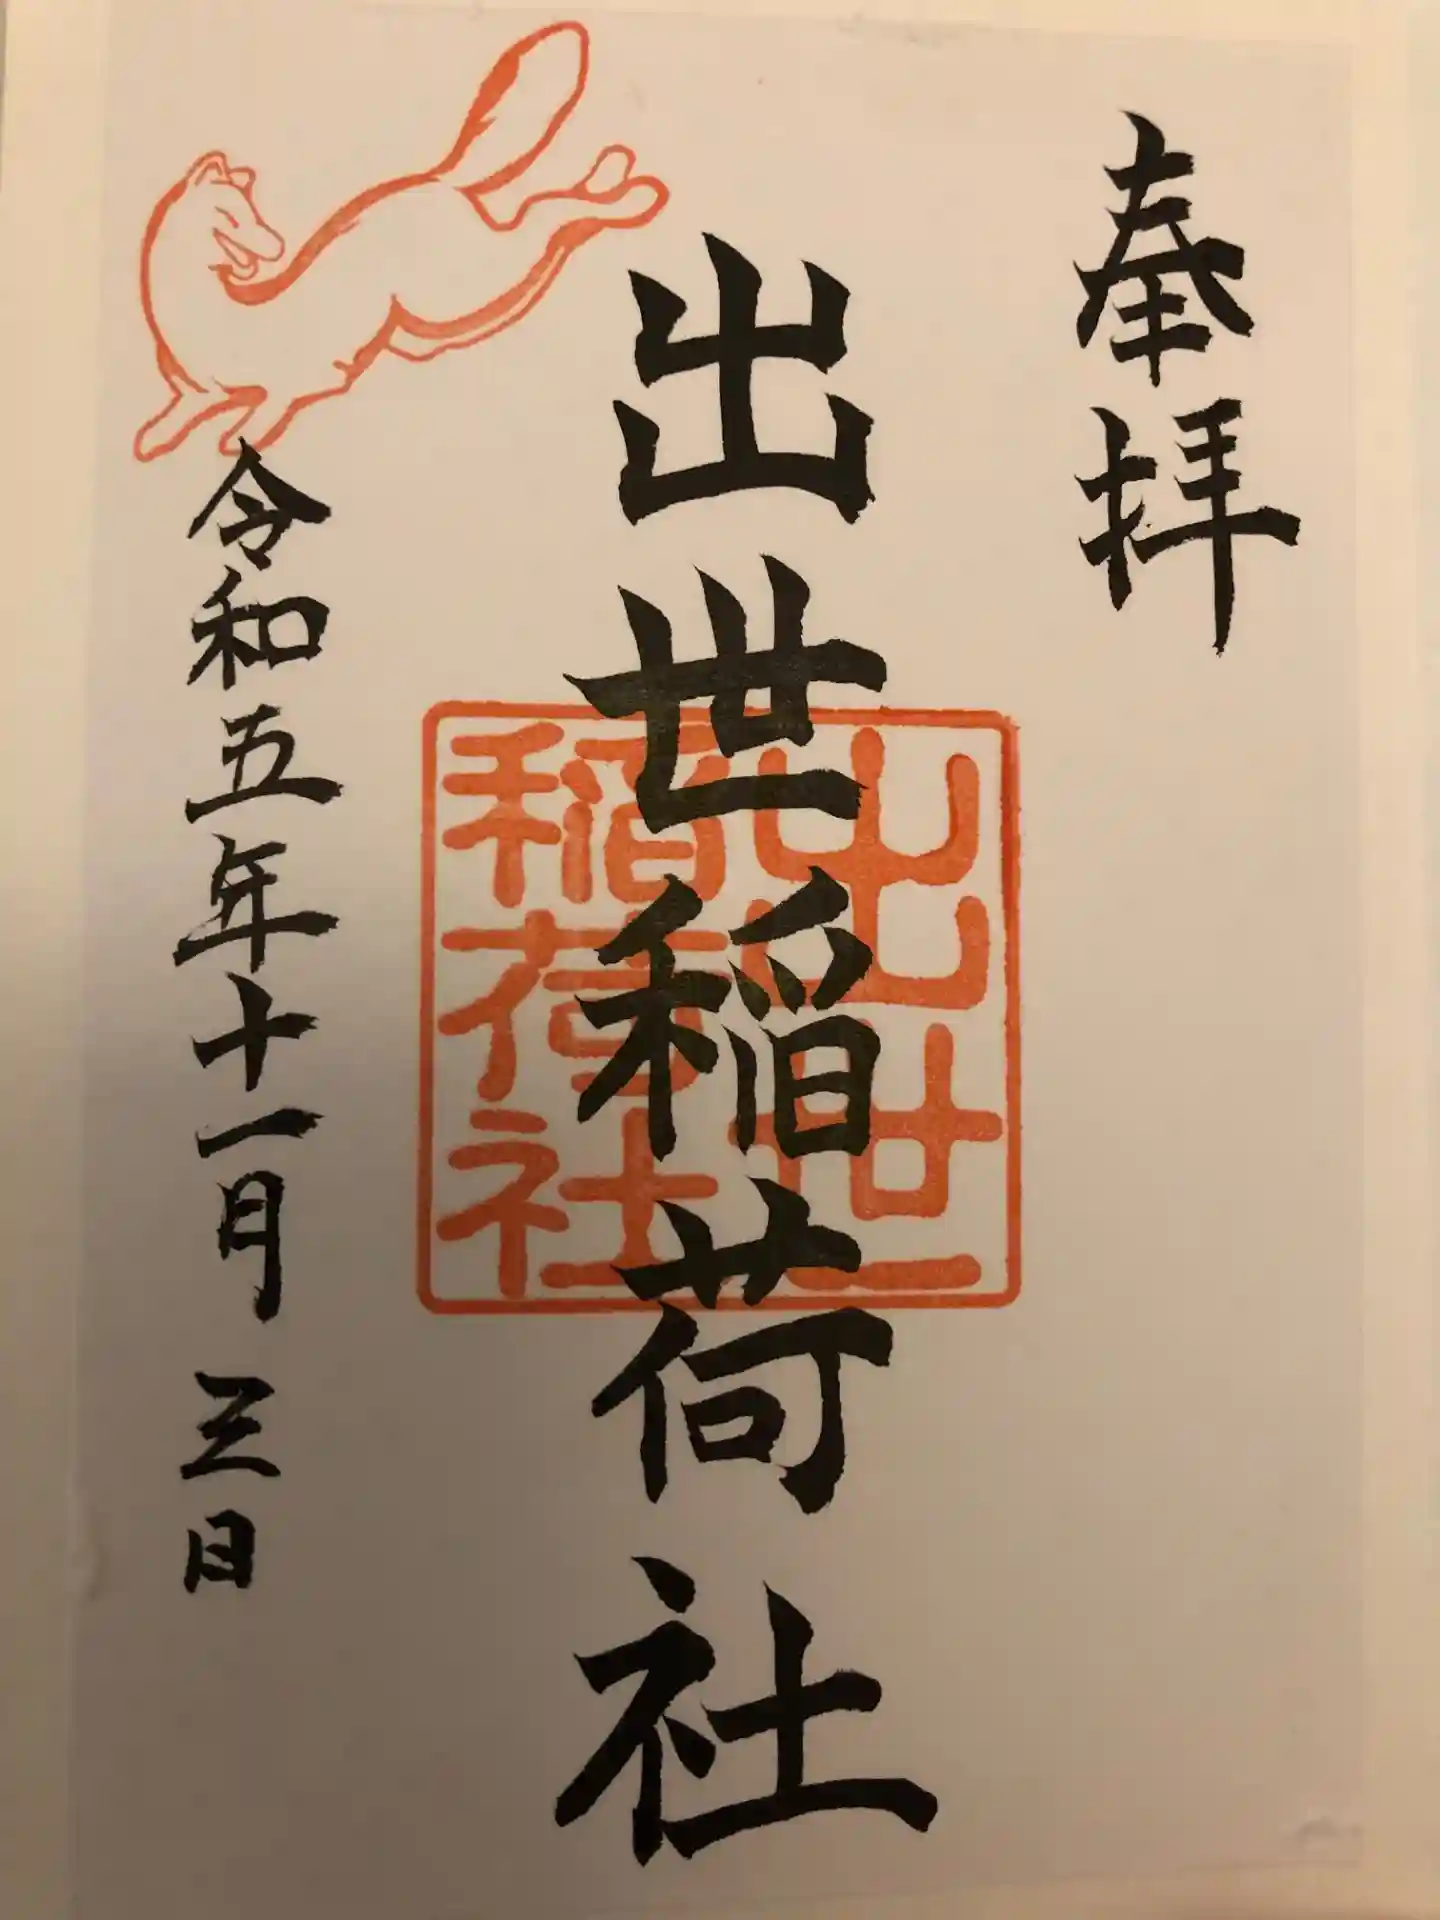 奉拝
出世稲荷社
出世
稲荷社
令和五年十一月三日